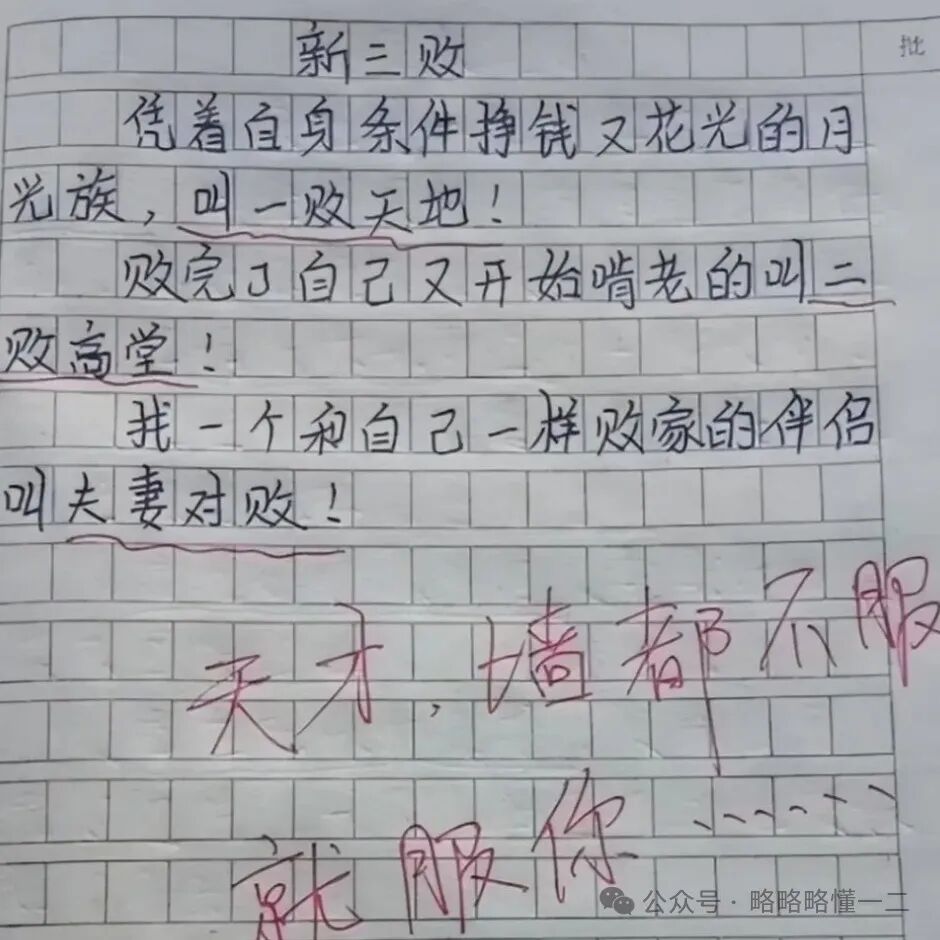 新三败
批
凭着自身条件挣钱又花光的月
光族，叫一败天地！
败完了自己又开始啃老的叫二
败高堂！
找一个和自己一样败家的伴侣
叫夫妻对败！
天才，墙都不服
就服你……
公众号·略略略懂一二